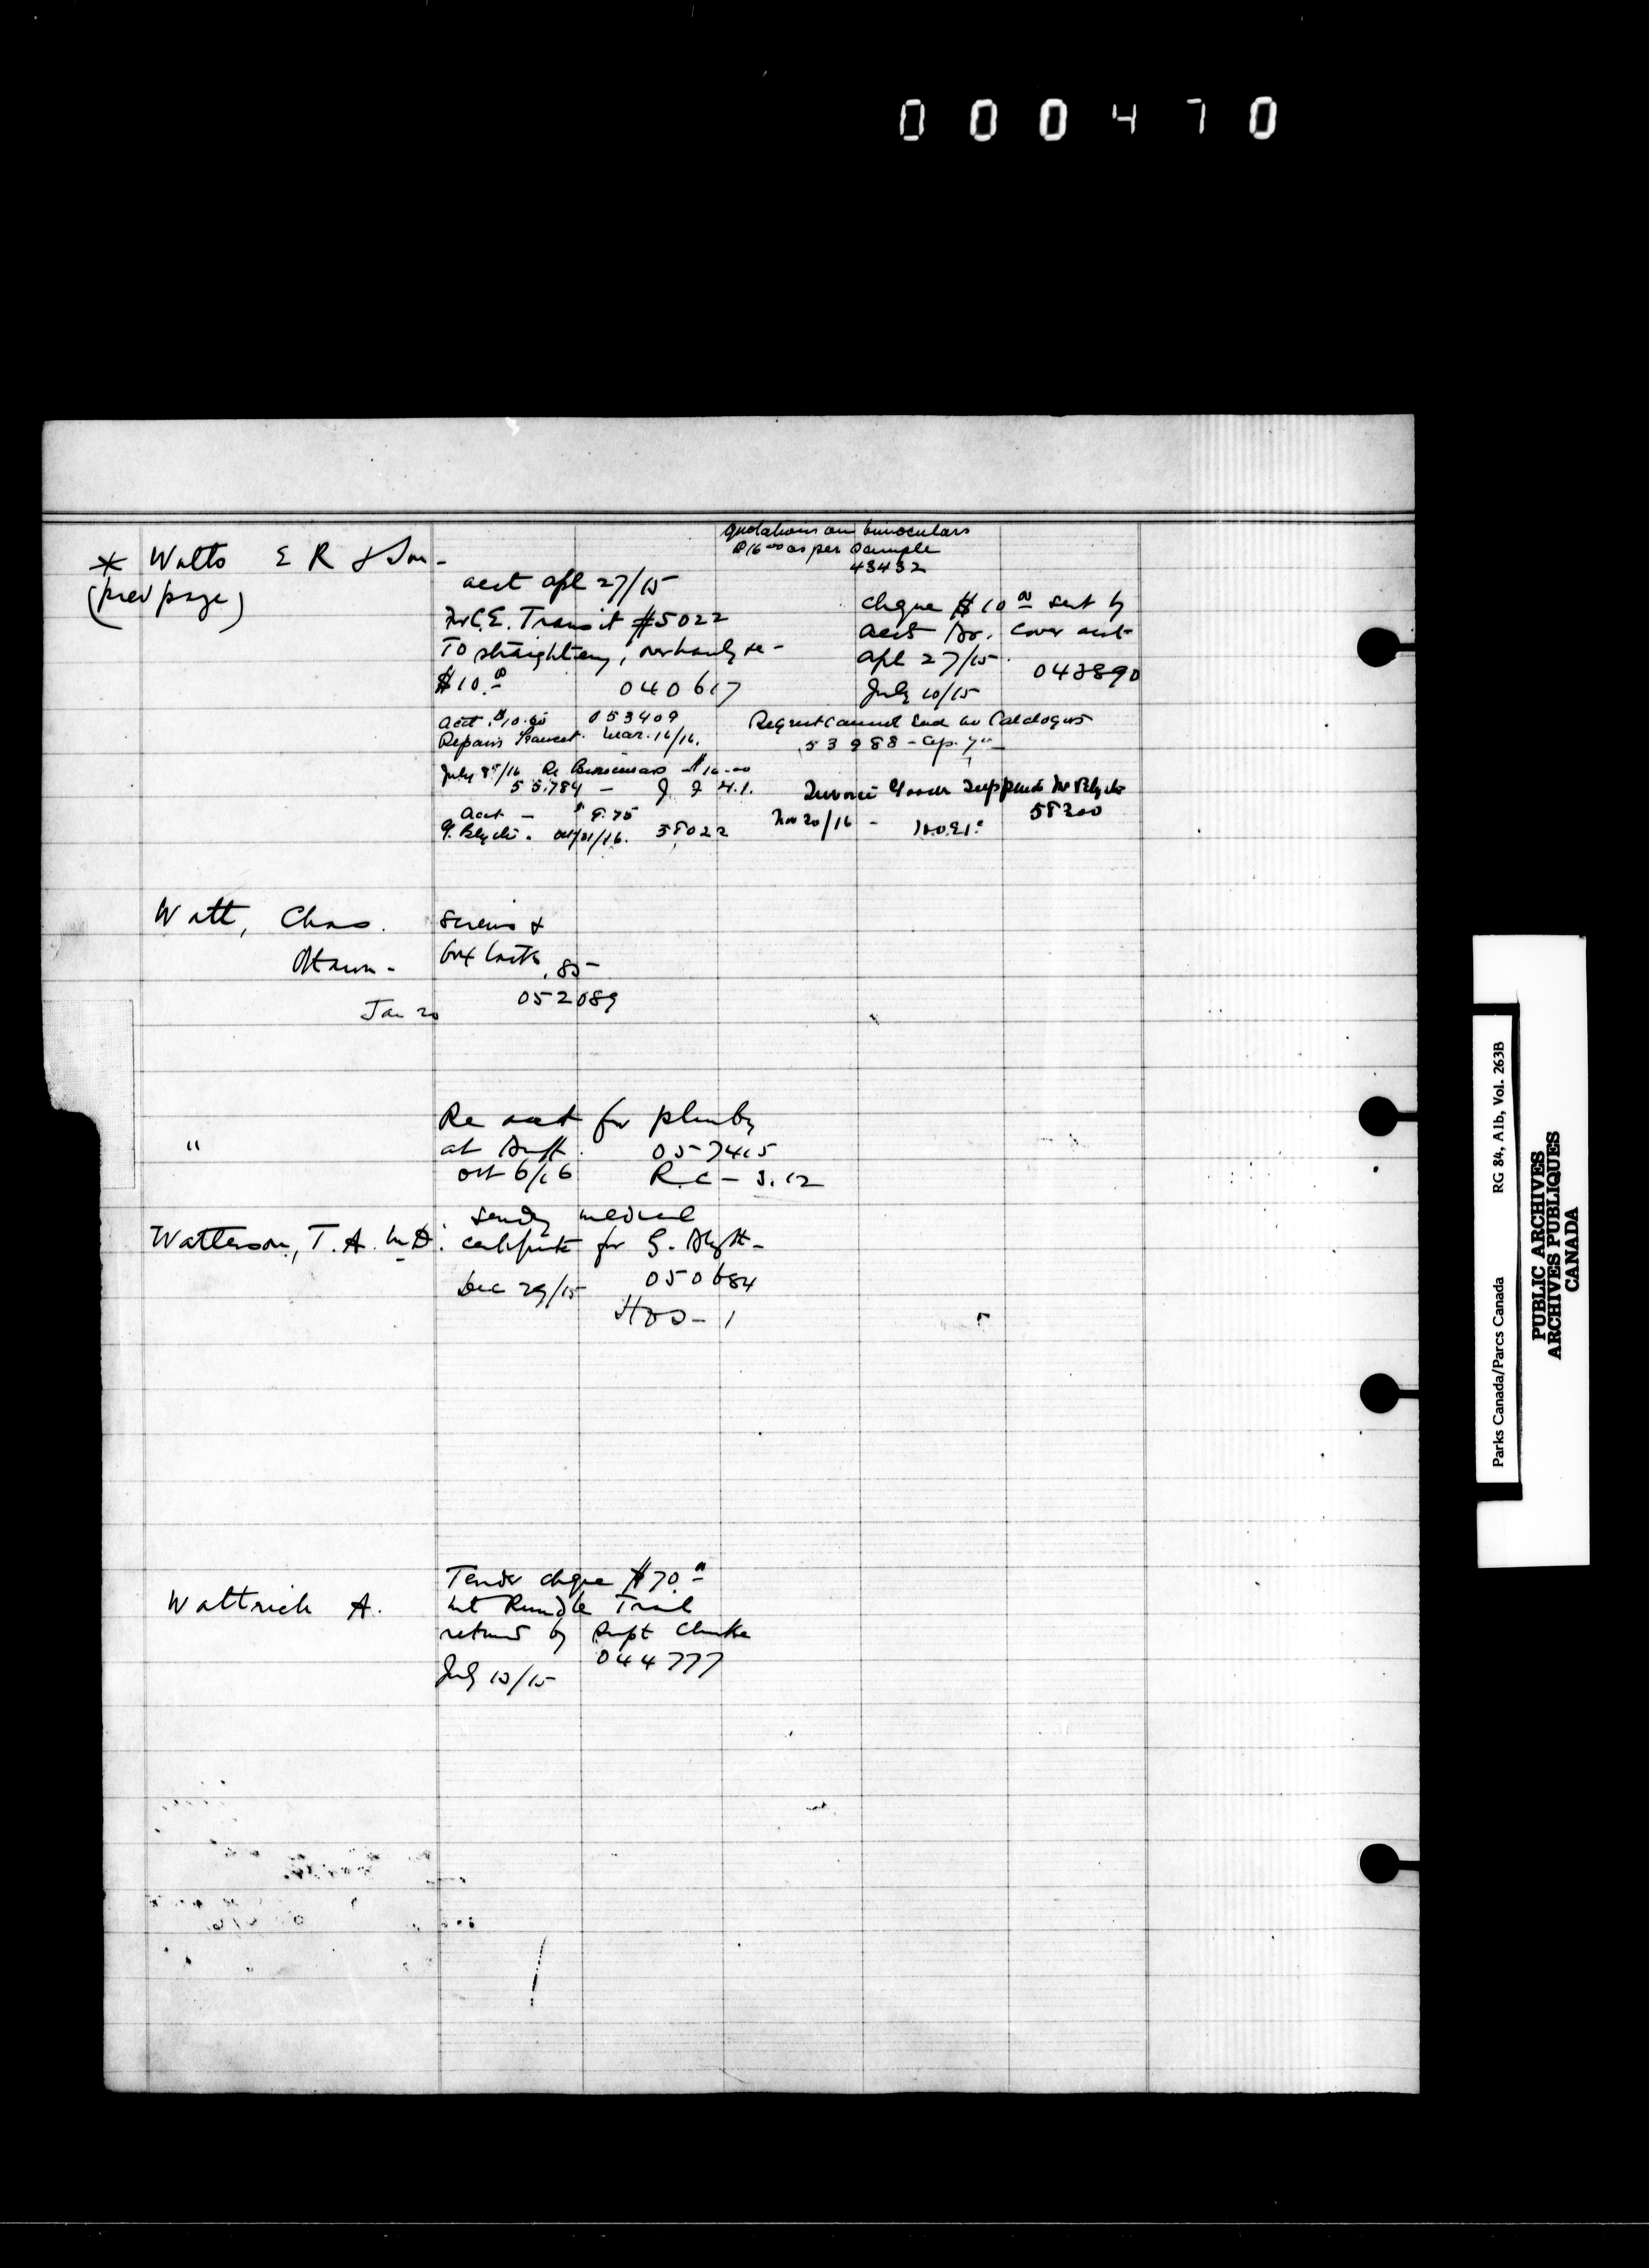 000470
* Watts E R & Son -
(prev page)
acct Apl 27/15
For C.E. Transit #5022
To straighteng, overhaulg re-
$10.00 040617
Acct. $10.00 053409
Repairs Transit. Mar. 16/16.
July 8th/16 Re Binoculars - $16.00
55784 - J. J H.1.
Acct - $8.75
G. Blyth. Oct/21/16. 58022
Quotations on binoculars
@ 16.00 as per Sample
43432
cheque $10.00 sent by
acct Br. cover acct
Apl 27/15. 043890
July 10/15
Regret cannot send Catalogues
53988 - Ap. 7th
Invoice Goods Supplied Mr Blyth
Nov 20/16 - 58200
Watt, Chas.
Ottawa -
Jan 20
Screws &
box locks .85
052089
"
Re acct for plumbg
at Banff.
057415
Oct 6/16 R.C - 3.12
Watterson, T. A. M.D.
Sendg medical
certificate for G. Blyth -
Dec 29/15 050684
HBS - 1
Wattrich A.
Tender cheque $70.00
Mt Rundle Trail
returned by Supt Clarke
July 10/15 044777
Parks Canada/Parcs Canada RG 84, Alb, Vol. 263B
PUBLIC ARCHIVES
ARCHIVES PUBLIQUES
CANADA